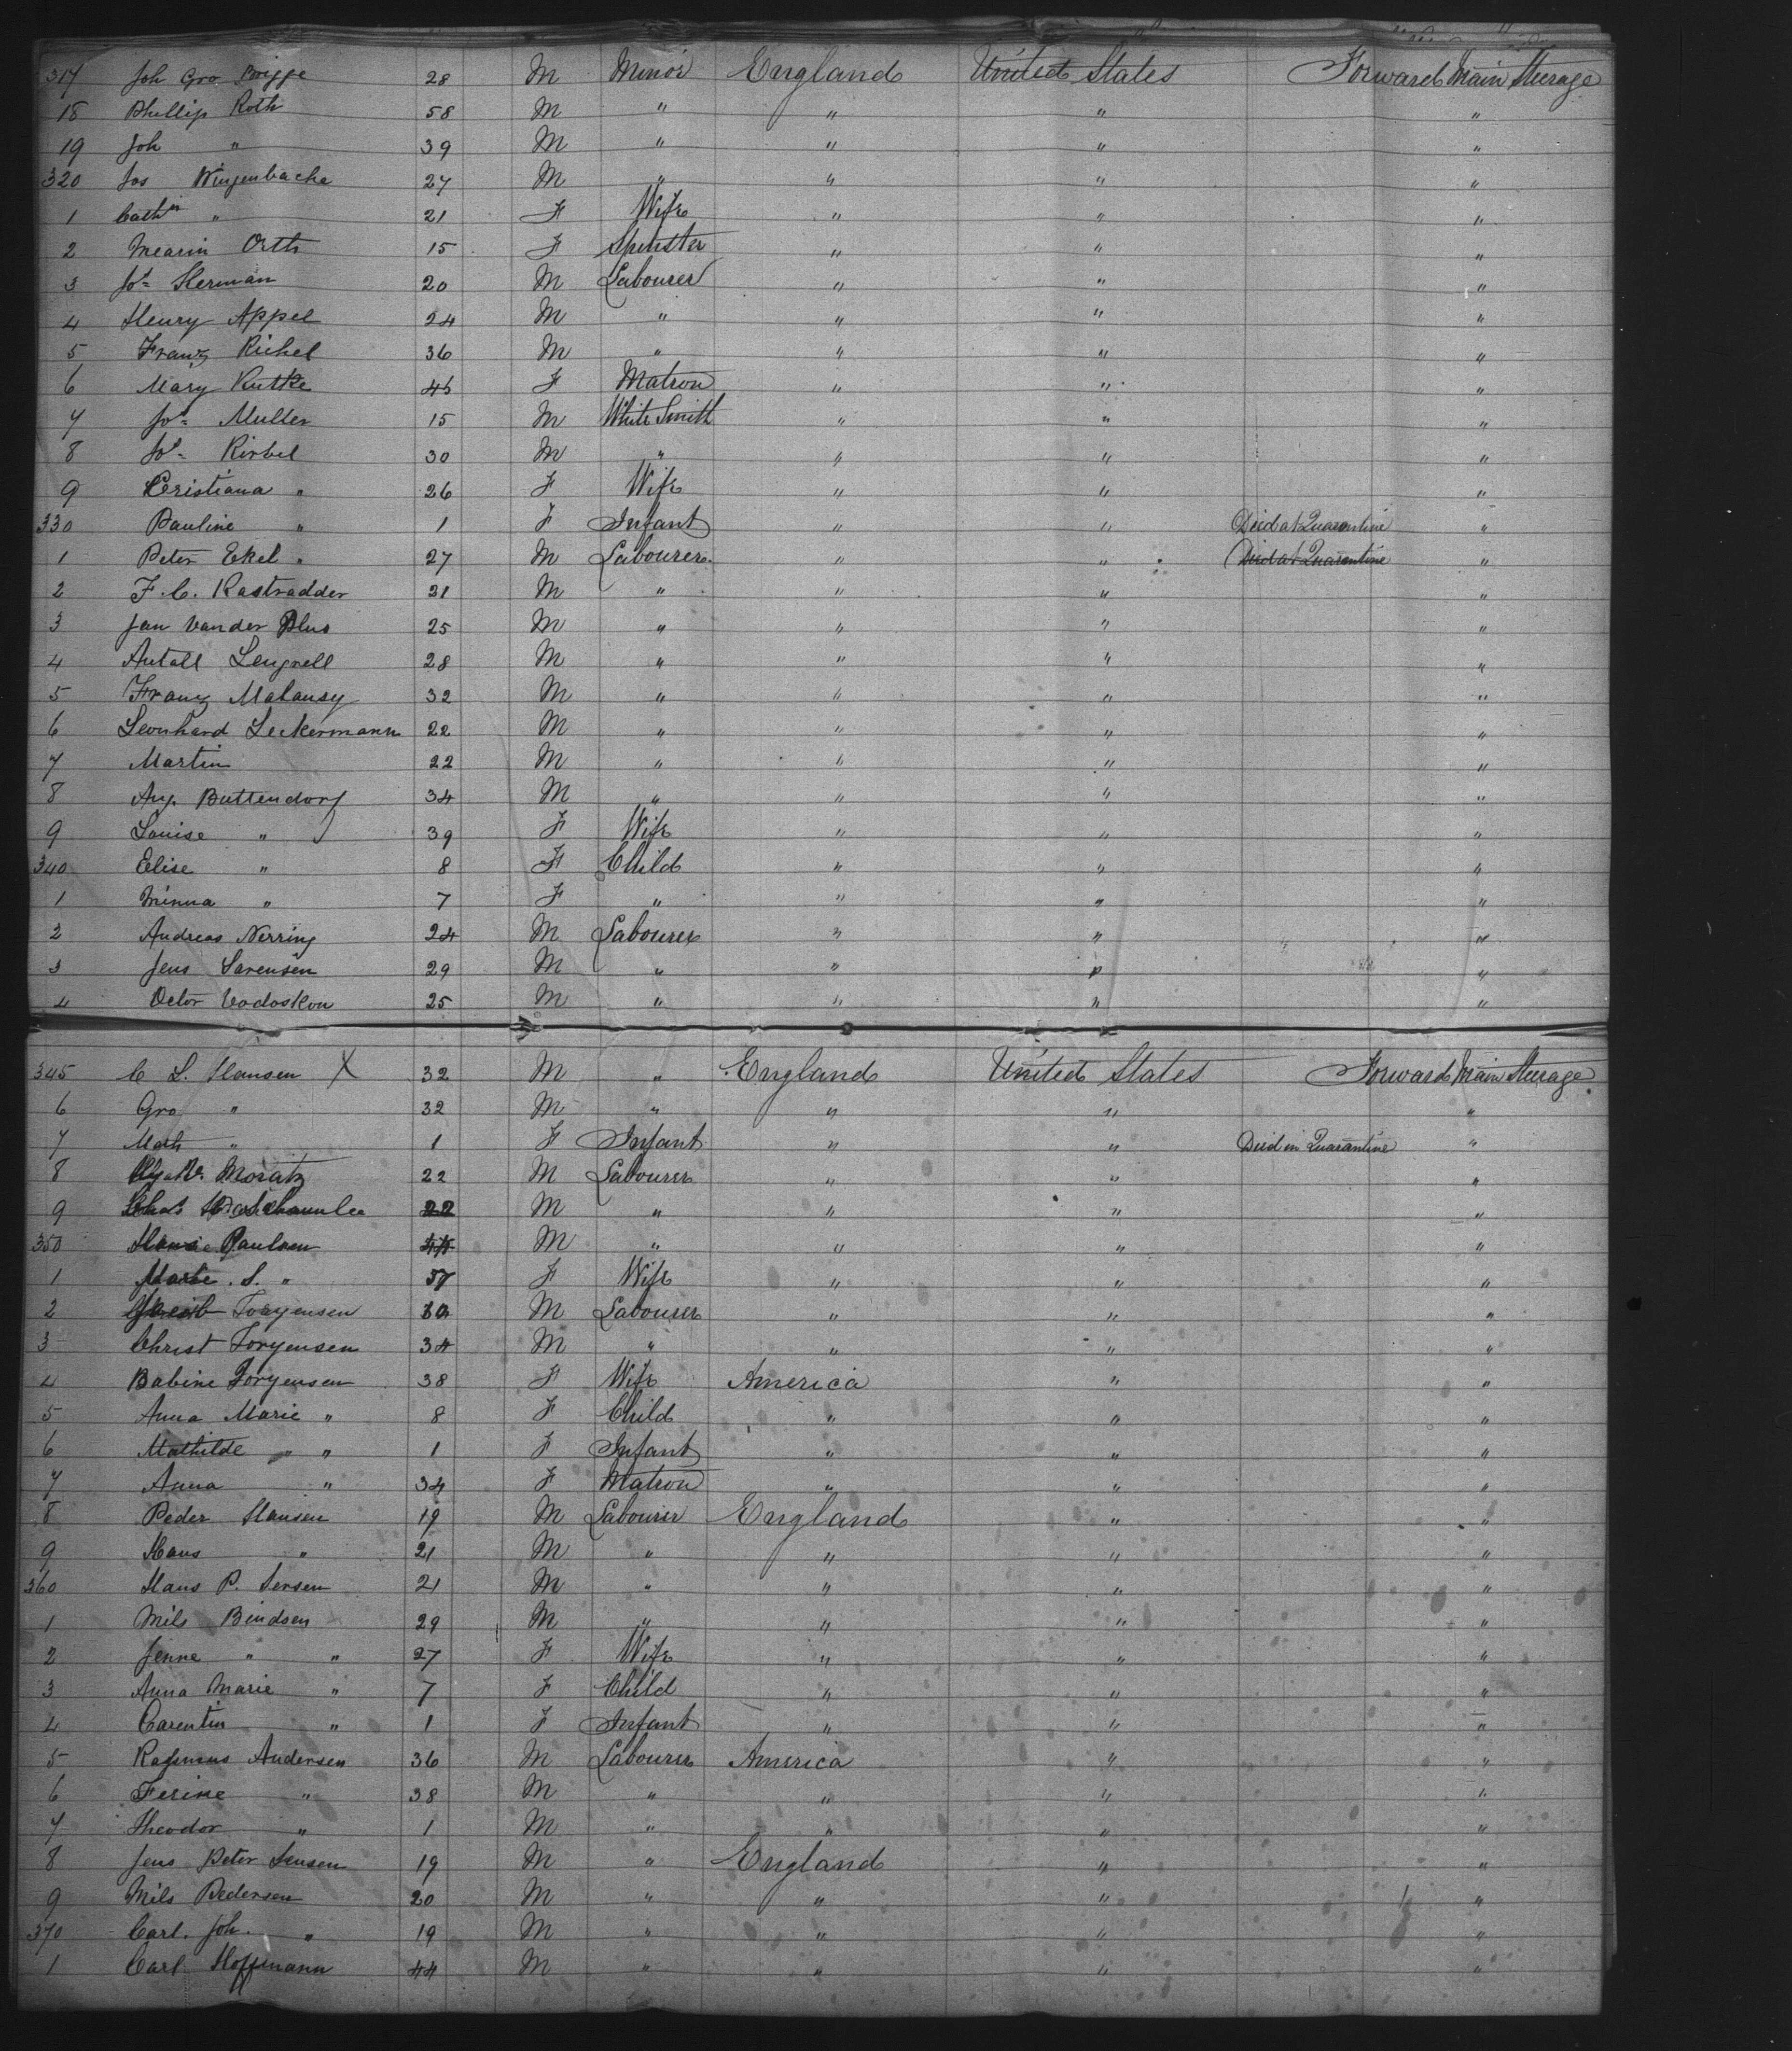 317 Joh Gro Brigge 28 M Minor England United States Forward Main Steerage
18 Phillip Roth 58 M " " " "
19 Joh " 39 M " " " "
320 Jos Wingenbache 27 M " " " "
1 Cathn " 21 F Wife " " "
2 Mearin Orth 15 F Spinster " " "
3 Jos Herman 20 M Labourer " " "
4 Henry Appel 24 M " " " "
5 Franz Richel 36 M " " " "
6 Mary Kutke 45 F Matron " " "
7 Jos Muller 15 M White Smith " " "
8 Jos Kirbel 30 M " " " "
9 Cristiana " 26 F Wife " " "
330 Pauline " 1 F Infant " " Died at Quarantine "
1 Peter Ekel " 27 M Labourer " " Died at Quarantine "
2 F. C. Rastradder 21 M " " " "
3 Jan Vander Plus 25 M " " " "
4 Antall Lengrell 28 M " " " "
5 Franz Malansy 32 M " " " "
6 Leonhard Leckermann 22 M " " " "
7 Martin 22 M " " " "
8 Aug. Buttendorf 34 M " " " "
9 Louise " 39 F Wife " " "
340 Elise " 8 F Child " " "
1 Minna " 7 F " " " "
2 Andreas Nerring 24 M Labourer " " "
3 Jens Sarensen 29 M " " " "
4 Octor Vodoskou 25 M " " " "
345 C L. Hansen X 32 M " England United States Forward Main Steerage
6 Gro " 32 M " " " "
7 Math " 1 F Infant " " Died in Quarantine "
8 Moratz 22 M Labourer " " "
9 22 M " " " "
350 Paulsen 44 M " " " "
1 Marie. S. " 37 F Wife " " "
2 Jacob Torgensen 30 M Labourer " " "
3 Christ Torgensen 34 M " " " "
4 Babine Torgensen 38 F Wife America " "
5 Anna Marie " 8 F Child " " "
6 Mathilde " " 1 F Infant " " "
7 Anna " 34 F Matron " " "
8 Peder Hansen 19 M Labourer England " "
9 Hans " 21 M " " " "
360 Hans P. Sersen 21 M " " " "
1 Nils Bindsen 29 M " " " "
2 Jenne " " 27 F Wife " " "
3 Anna Marie " 7 F Child " " "
4 Carentin " 1 F Infant " " "
5 Rasmus Andersen 36 M Labourer America " "
6 Ferine " 38 M " " " "
7 Theodor " 1 M " " " "
8 Jens Peter Jensen 19 M " England " "
9 Nils Pedersen 20 M " " " "
370 Carl. Joh. " 19 M " " " "
1 Carl Hoffmann 44 M " " " "